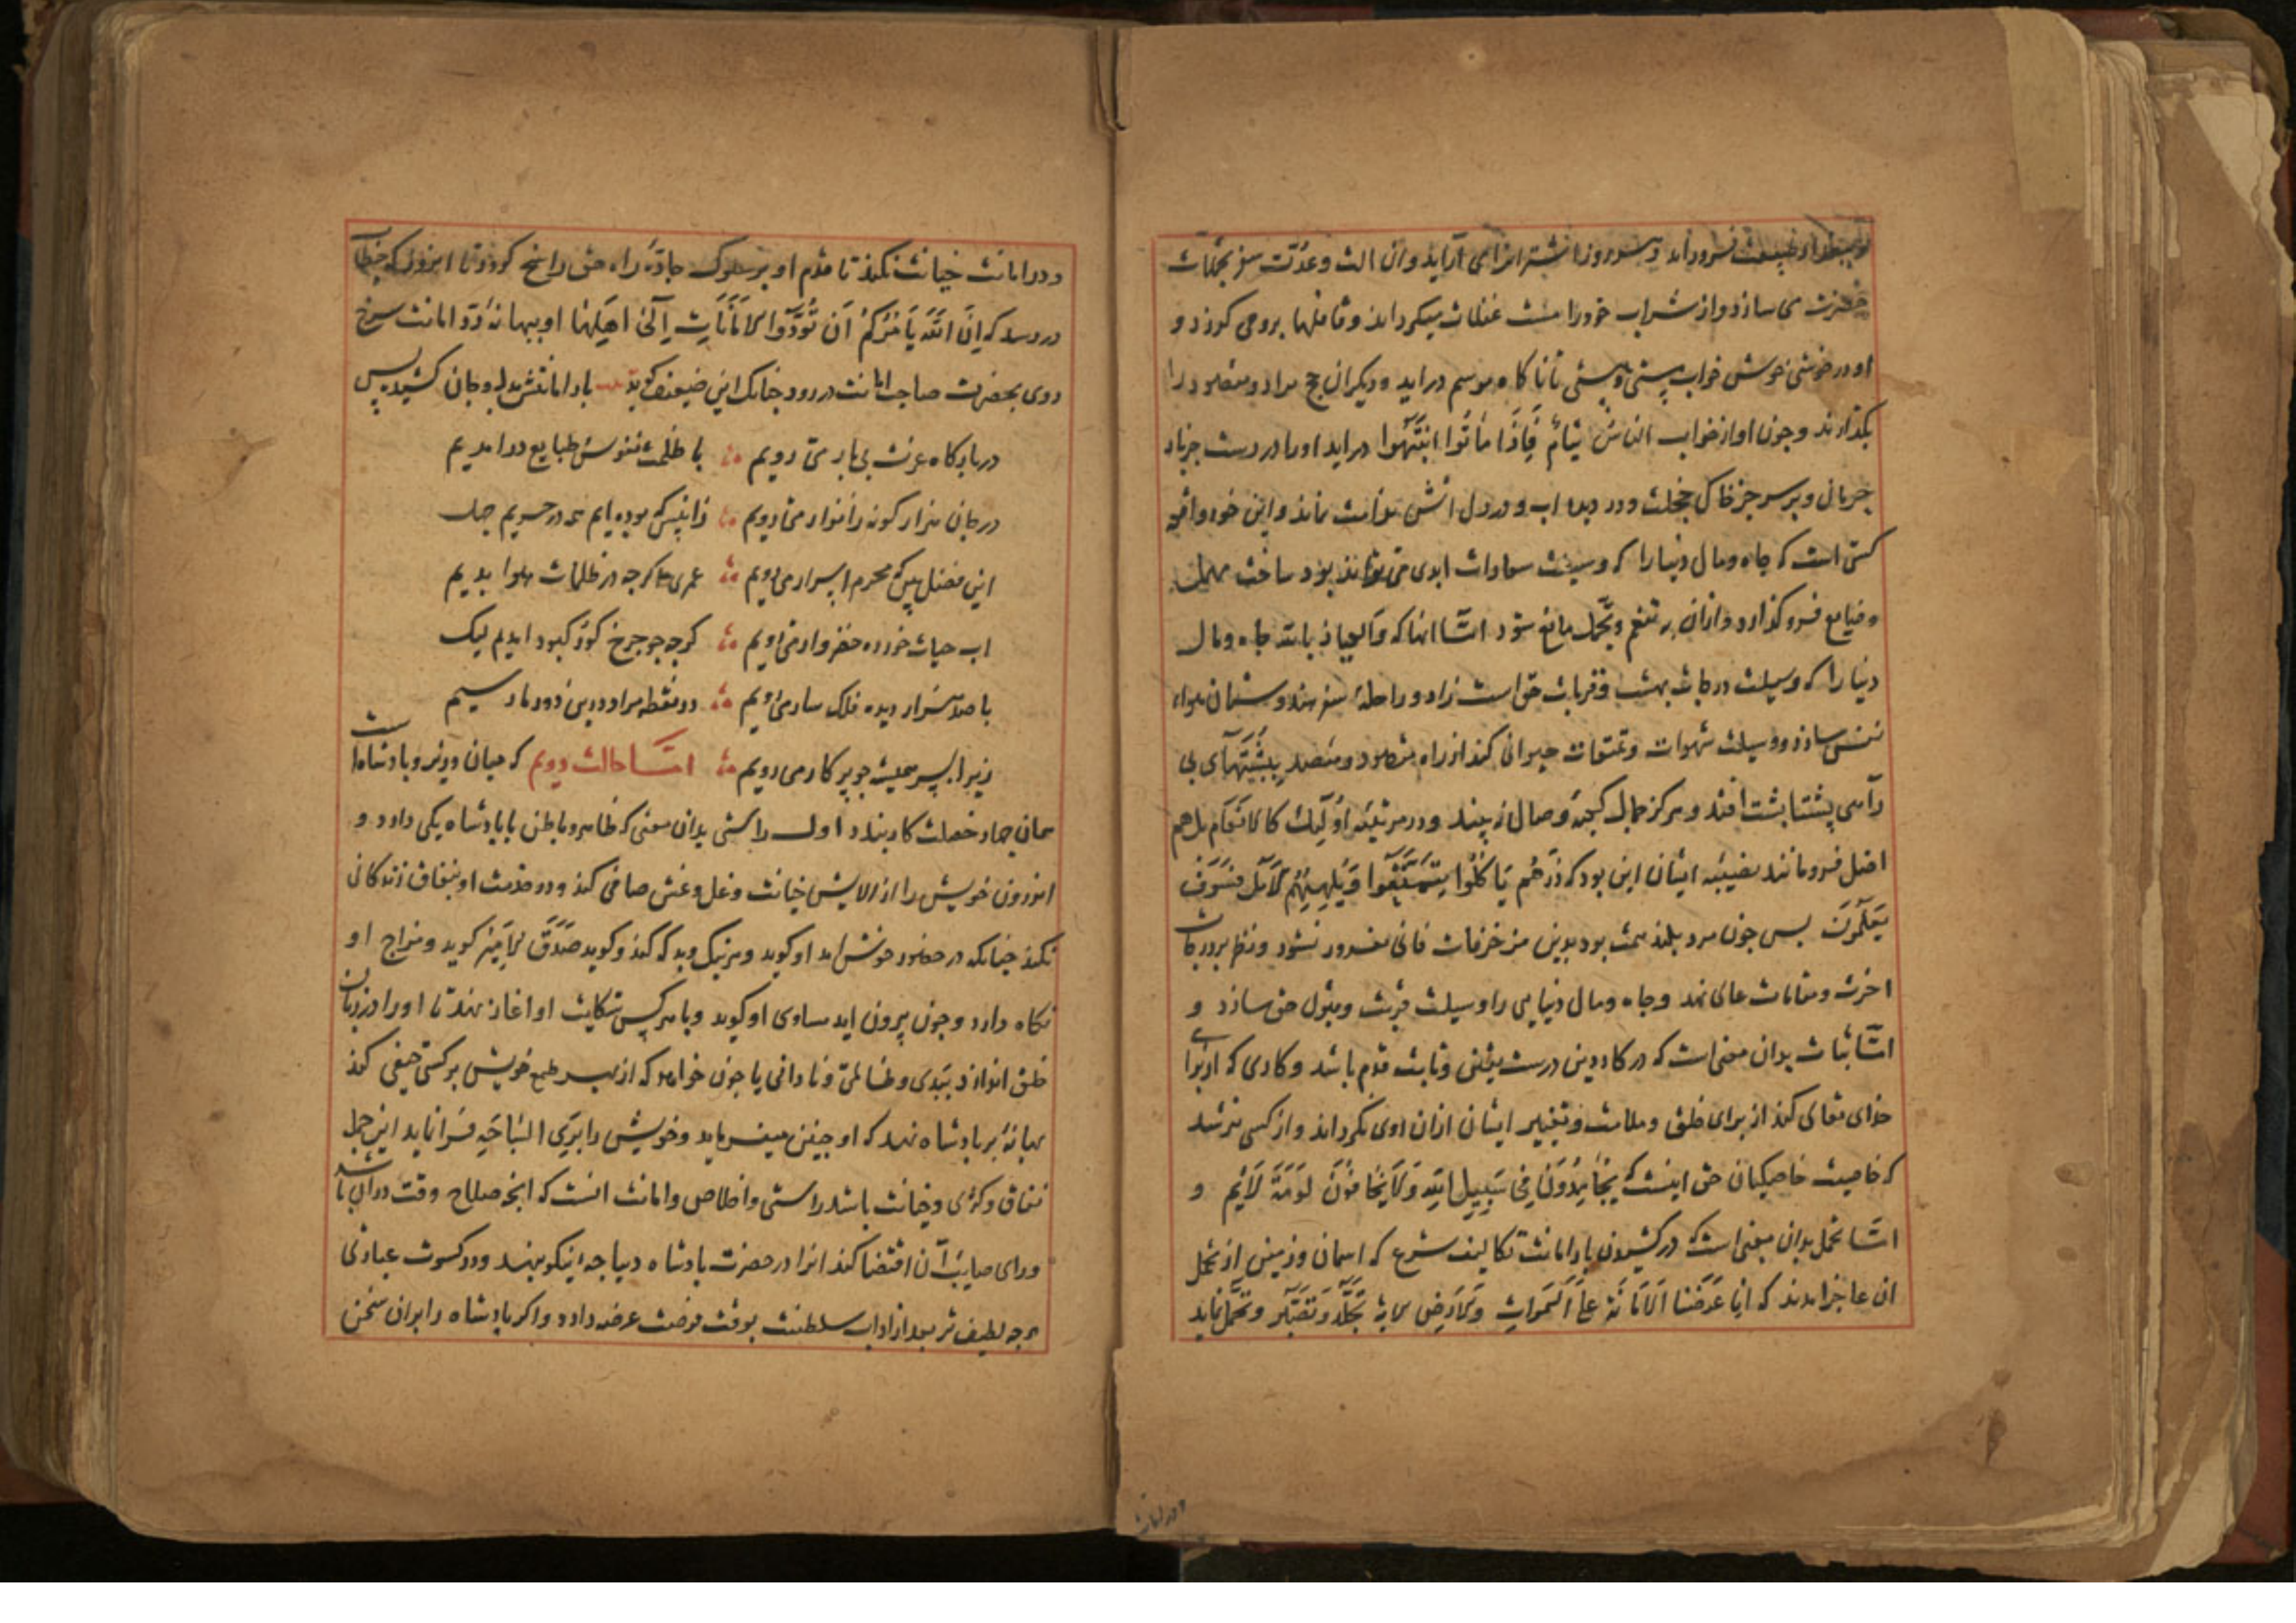 فرود آید و سه روز اشتر انرا می آراید و ان الت و عدت سفر بتجملات
حضرت می سازد و از شراب خود را مست غفلت میکرداند و قافلها برو می کوزد و
او در خوشی خوش خواب پستی و مستی تا ناکاه موسم دراید و دیکران حج مراد و مقصود را
بکذارند و جون او از خواب الناسُ نیامٌ فَاِذَا مَاتُوا انتَبَهوا دراید او را در دست جز باد
جرمان و بر سر جز خاک خجلت و در دیده اب و در دل اتش ندامت نماند و این خود واقعه
کسی است که جاه و مال دنیا را که وسیلت سعادات ابدی می تواند بود ساخت مهمل
و ضایع فرو کذارد و ازان بر تنعم و تجمل مانع شود امّا انها که والعیاذ بالله جاه و مال
دنیا را که وسیلت درجات بهشت و قربات حق است زاد و راحلهٔ سفر هند و ستان هواء
نفس سازد و وسیلت شهوات و تمتعات حیوانی کند از راه مقصود و مقصد
پشتا پشت افتد و هرکز جمال کعبهٔ وصال نه بیند و در مرتبهٔ اُولٰئِکَ کالاَنعَام بل هم
اضل فرو مانند نصیبهٔ ایشان این بود که ذَرهُم یَاکُلُوا وَیَتَمَتَّعُوا وَیُلهِهِمُ الاَمَل فَسَوفَ
یَعلَمُونَ بس جون مرد بلند همت بود بدین مزخرفات فانی مغرور نشود و نظر بر درجات
اخرت و مقامات عالی نهد و جاه و مال دنیایی را وسیلت قربت و قبول حق سازد و
امّا ثبات بدان معنی است که در کار دین درست یقین و ثابت قدم باشد و کاری که از برای
خدای تعالی کند از برای خلق و ملامت و تغییر ایشان ازان روی نکرداند و از کسی نترسد
که خاصیت خاصکیان حق اینست که یُجَاهِدُونَ فِی سَبِیلِ اللهِ وَلَا یَخَافُونَ لَومَةَ لَائِم و
امّا تحمل بدان معنی است که در کشیدن بار امانت تکالیف شرع که اسمان و زمین از تحمل
ان عاجز امدند که اِنّا عَرَضنَا الاَمَانَةَ عَلَی السّمَواتِ وَالاَرضِ الایه تجلّد و تصبّر و تحمّل نماید
و در امانت
و در امانت خیانت نکند تا قدم او بر سلوک جادهٔ راه حق راسخ کردد تا امروز که خطاب
در رسد که اِنَّ اللّهَ یَأمُرُکُم اَن تُؤَدُّوا الاَمَانَاتِ اِلَی اَهلِهَا او ببهانهٔ رد امانت سرخ
روی بحضرت صاحب امانت در رود جنانک این ضعیف کوید بار امانتش بدل و جان کشیده پس
در بارکاه عزت بی بار می رویم ؞ با ظلمت نفوس طبایع در امدیم
در جان هزار کونه ز انوار می رویم ؞ زانپس که بوده ایم در حریم جهل
این فضل بین که محرم اسرار می رویم ؞ عمری اکرجه در ظلمات هوا بدیم
اب حیات خورده خضر وار می رویم ؞ کرجه جو جرخ کوژ کبود امدیم لیک
با صد هزار دیده فلک سار می رویم ؞ در نقطه مراد رسیم
زیرا بسر همیشه جو پرکار می رویم ؞ امّا حالت دویم که میان وزیر و بادشاه است
همان جهار خصلت کار بندد اول راستی بدان معنی که ظاهر و باطن با بادشاه یکی دارد و
اندرون خویش را از الایش خیانت و غل و غش صافی کند و در خدمت او بنفاق زندکانی
نکند جنانکه در حضور خوش امد او کوید و هر نیک و بد که کند و کوید صَدَقَ الاَمِیر کوید و مزاج او
نکاه دارد و جون بیرون اید مساوی او کوید و با هر کس شکایت او اغاز نهد تا او را در زبان
خلق اندازد ببدی و ظالمی و نادانی یا جون خواهد که از بهر طمع خویش بر کسی حیفی کند
بهانهٔ بر بادشاه نهد که او جنین میفرماید و خویش را بَرِیَ السّاحَةِ فرا نماید این جمله
نفاق و کژی و خیانت باشد راستی و اخلاص و امانت انست که انجه صلاح وقت دران باشد
و رای صایب ان اقتضا کند انرا در حضرت بادشاه دیباجهٔ نیکو بنهد و در کسوت عبارتی
هر جه لطیف تر بعد از اداب سلطنت بوقت فرصت عرضه دارد و اکر بادشاه را بران سخن